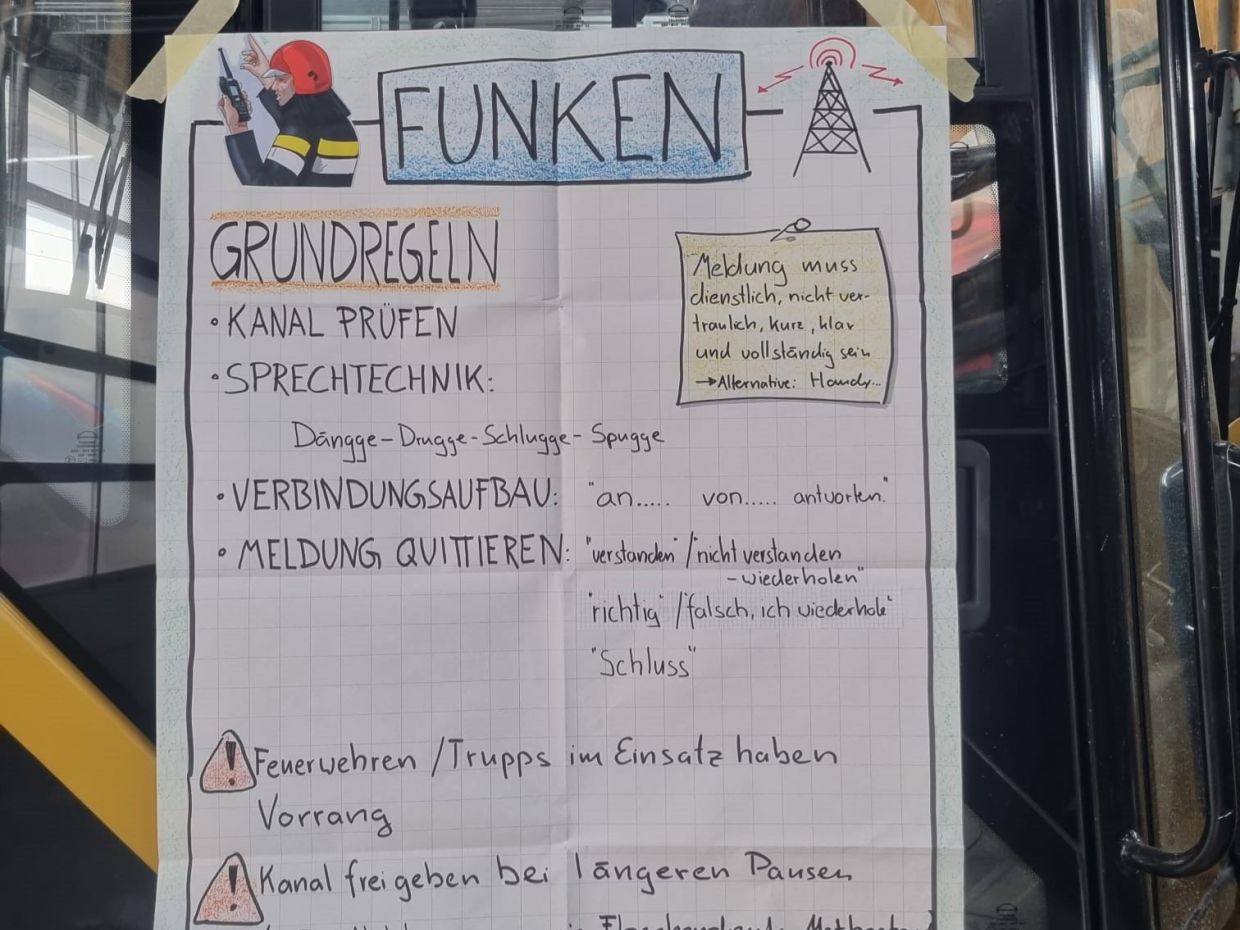 FUNKEN
GRUNDREGELN
• KANAL PRÜFEN
• SPRECHTECHNIK:
Dängge-Drugge-Schlugge-Spugge
• VERBINDUNGSAUFBAU: "an..... von..... antworten."
• MELDUNG QUITTIEREN: "verstanden" / "nicht verstanden
- wiederholen"
"richtig" / falsch, ich wiederhole"
"Schluss"
Meldung muss
dienstlich, nicht ver-
traulich, kurz, klar
und vollständig sein
→ Alternative: Handy...
! Feuerwehren / Trupps im Einsatz haben
Vorrang
! Kanal freigeben bei längeren Pausen